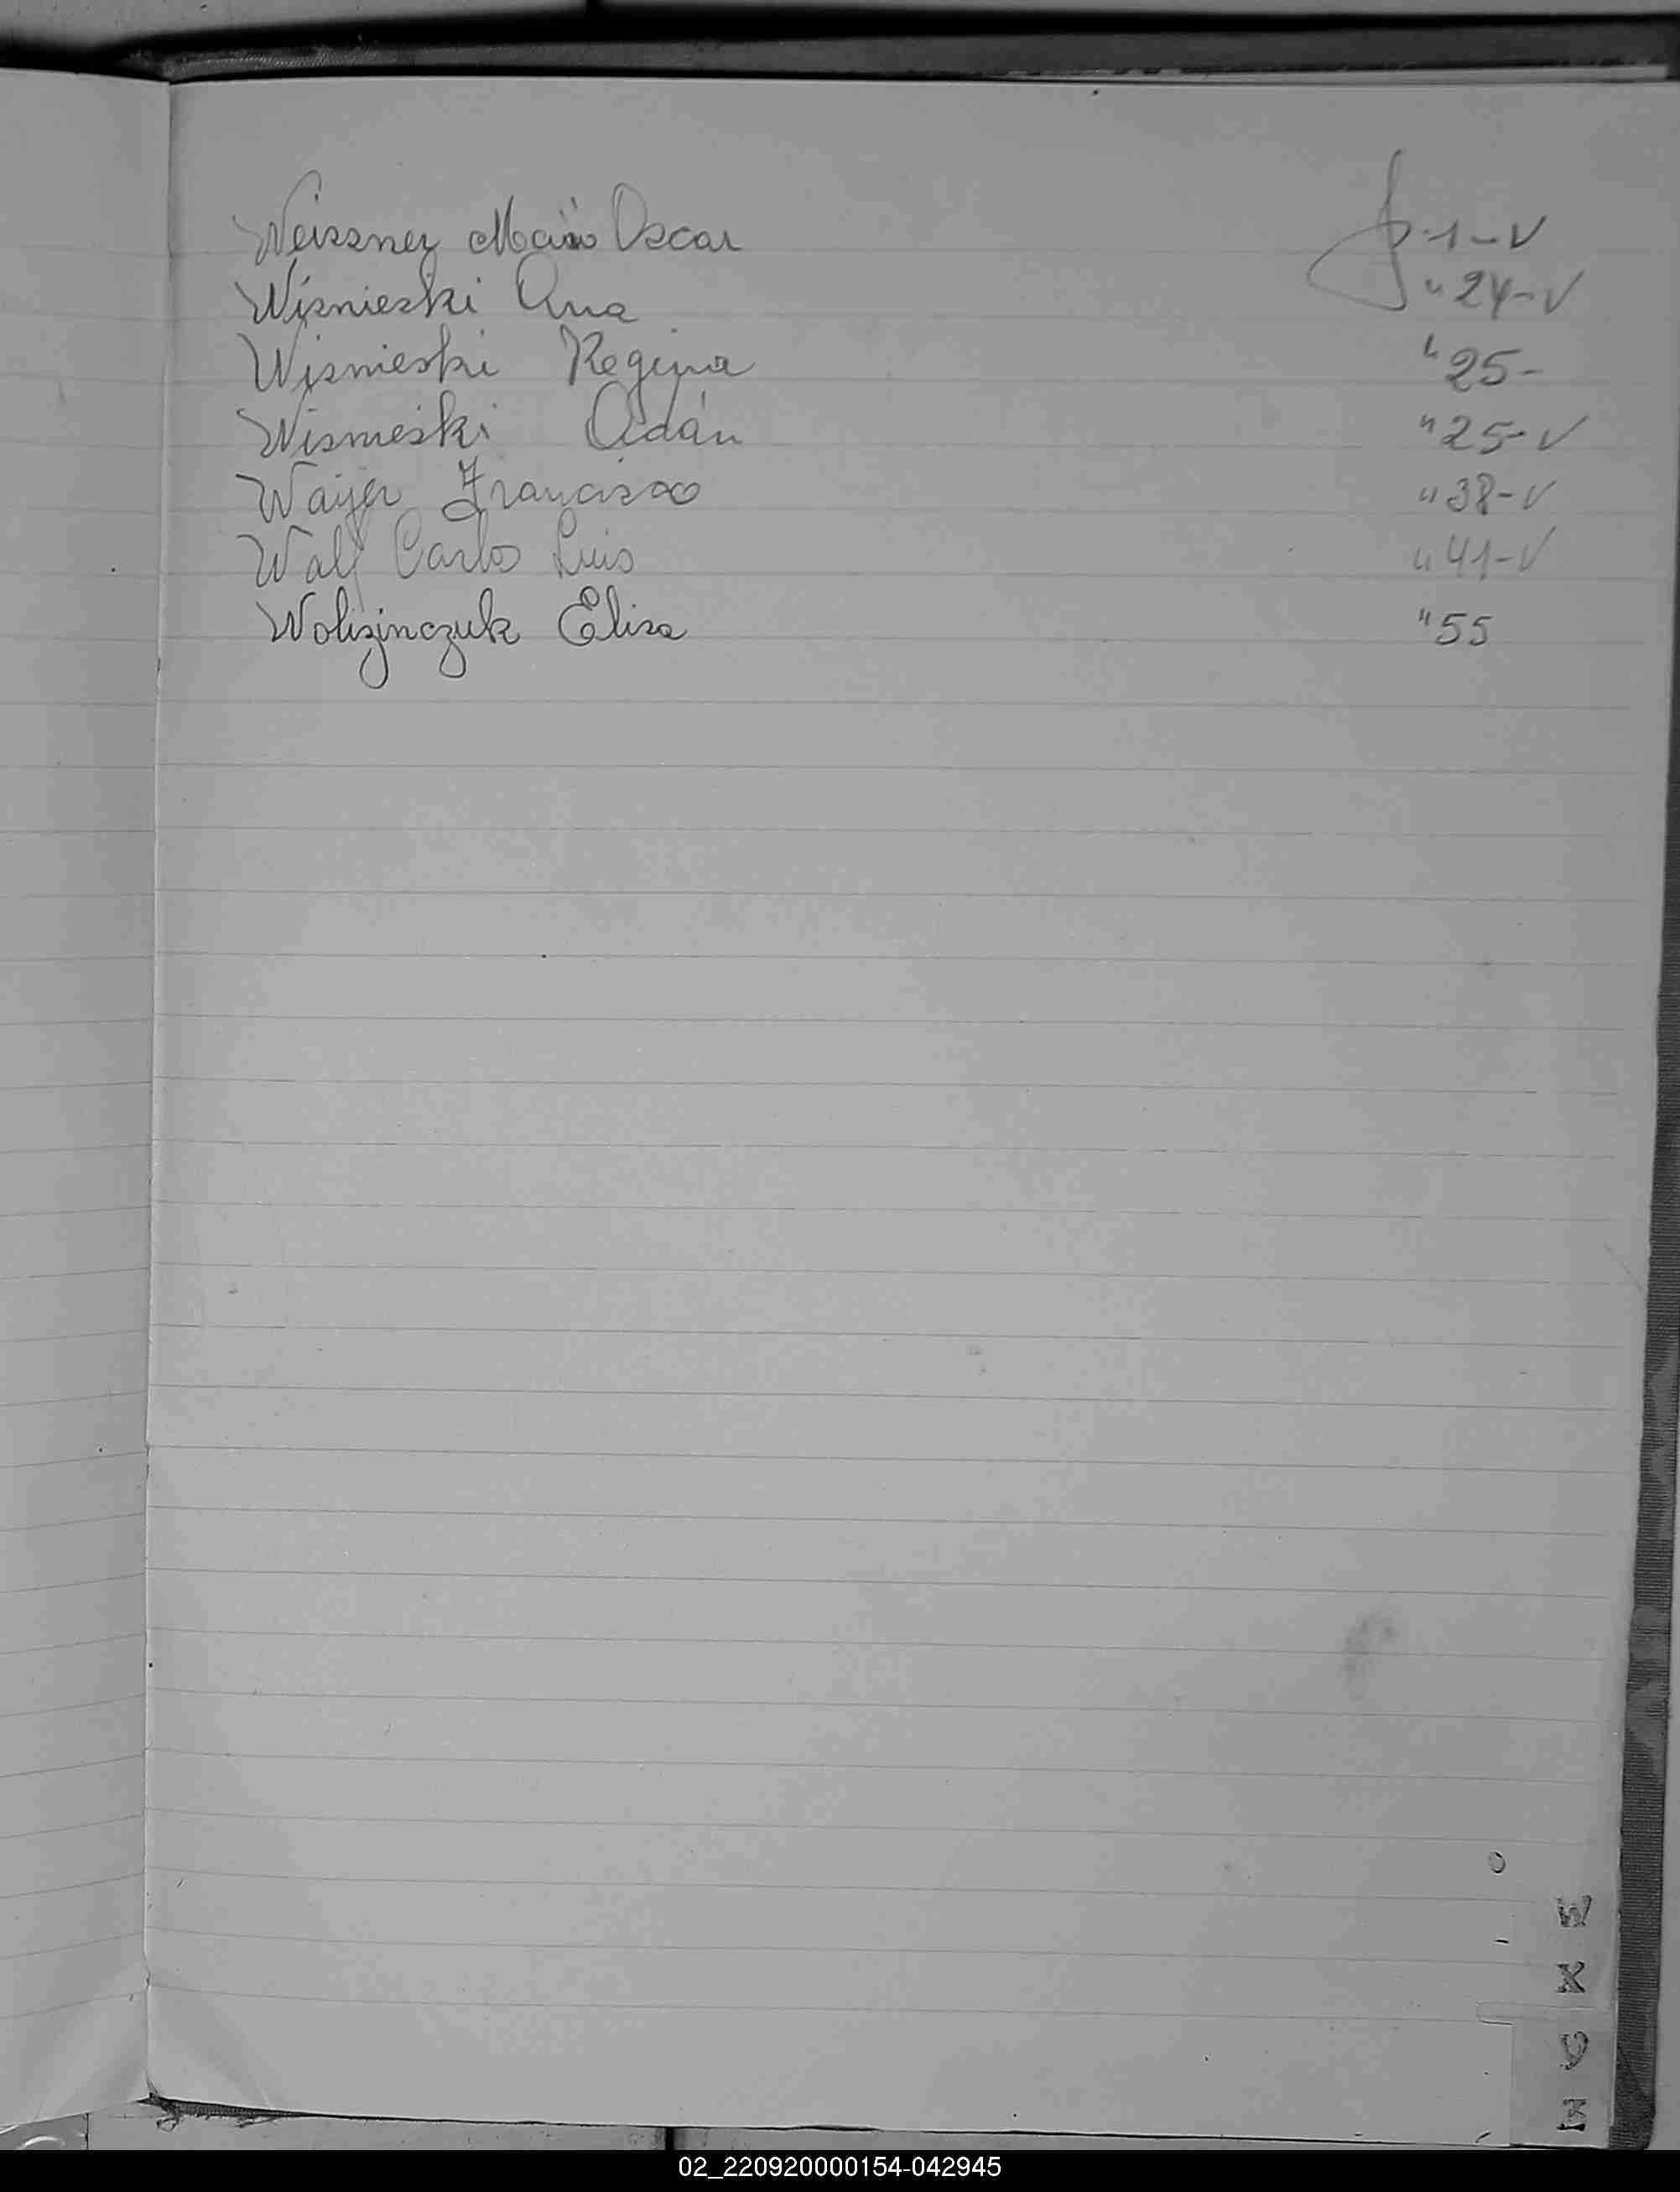 Weiszner Mario Oscar f 1-V
Wisnieski Ana " 24-V
Wisnieski Regina " 25-
Wisnieski Adán " 25-V
Waijer Francisco " 38-V
Walf Carlos Luis " 41-V
Wolisinczuk Elisa " 55
W
X
Y
Z
02_220920000154-042945